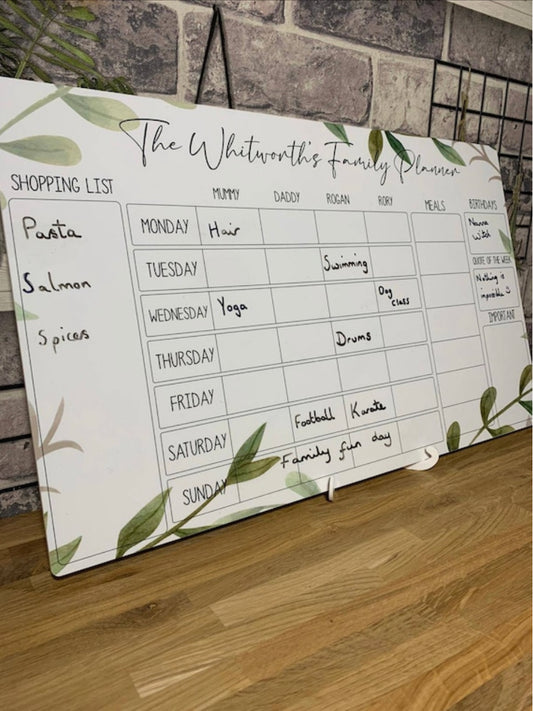 The Whitworth's Family Planner
SHOPPING LIST
Pasta
Salmon
Spices
MUMMY DADDY ROGAN RORY
MONDAY Hair
TUESDAY Swimming
WEDNESDAY Yoga Dog class
THURSDAY Drums
FRIDAY
SATURDAY Football Karate
SUNDAY Family fun day
MEALS
BIRTHDAYS
Nanna
witch
QUOTE OF THE WEEK
Nothing is
impossible
IMPORTANT